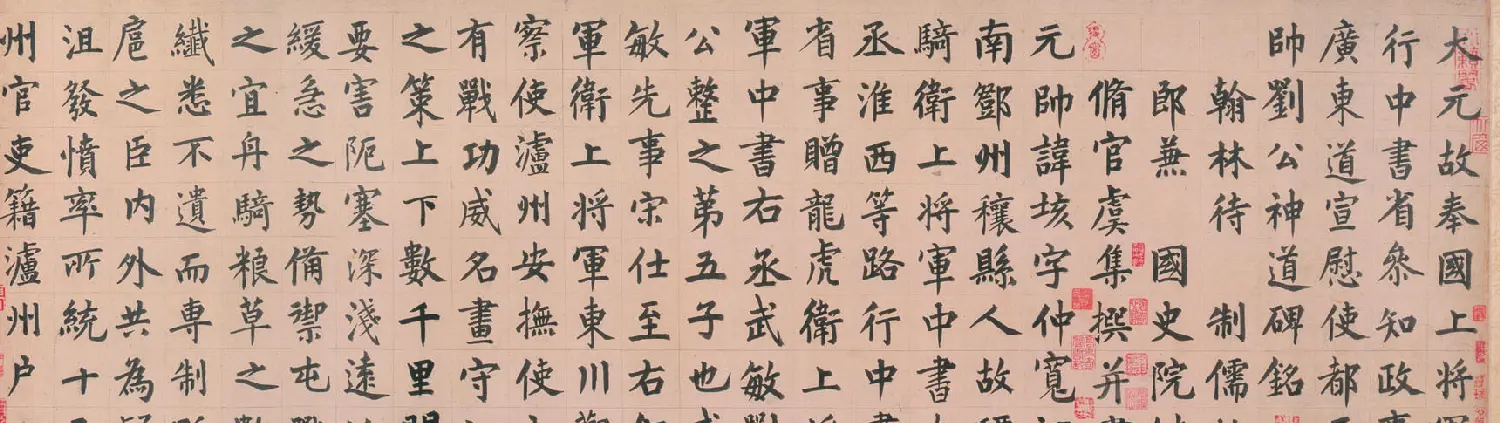 大元故奉國上將
行中書省叅知政
廣東道宣慰使都
帥劉公神道碑銘
翰林待 制儒
郎兼 國史院
脩官虞集撰并
元帥諱垓字仲寬
南鄧州穰縣人故
騎衛上將軍中書
丞淮西等路行中
省事贈龍虎衛上
軍中書右丞武敏
公整之第五子也
敏先事宋仕至右
軍衛上將軍東川
察使瀘州安撫使
有戰功威名畫守
之策上下數千里
要害阨塞深淺遠
緩急之勢備禦屯
之宜舟騎粮草之
纖悉不遺而專制
扈之臣内外共為
沮發憤率所統十
州官吏籍瀘州户